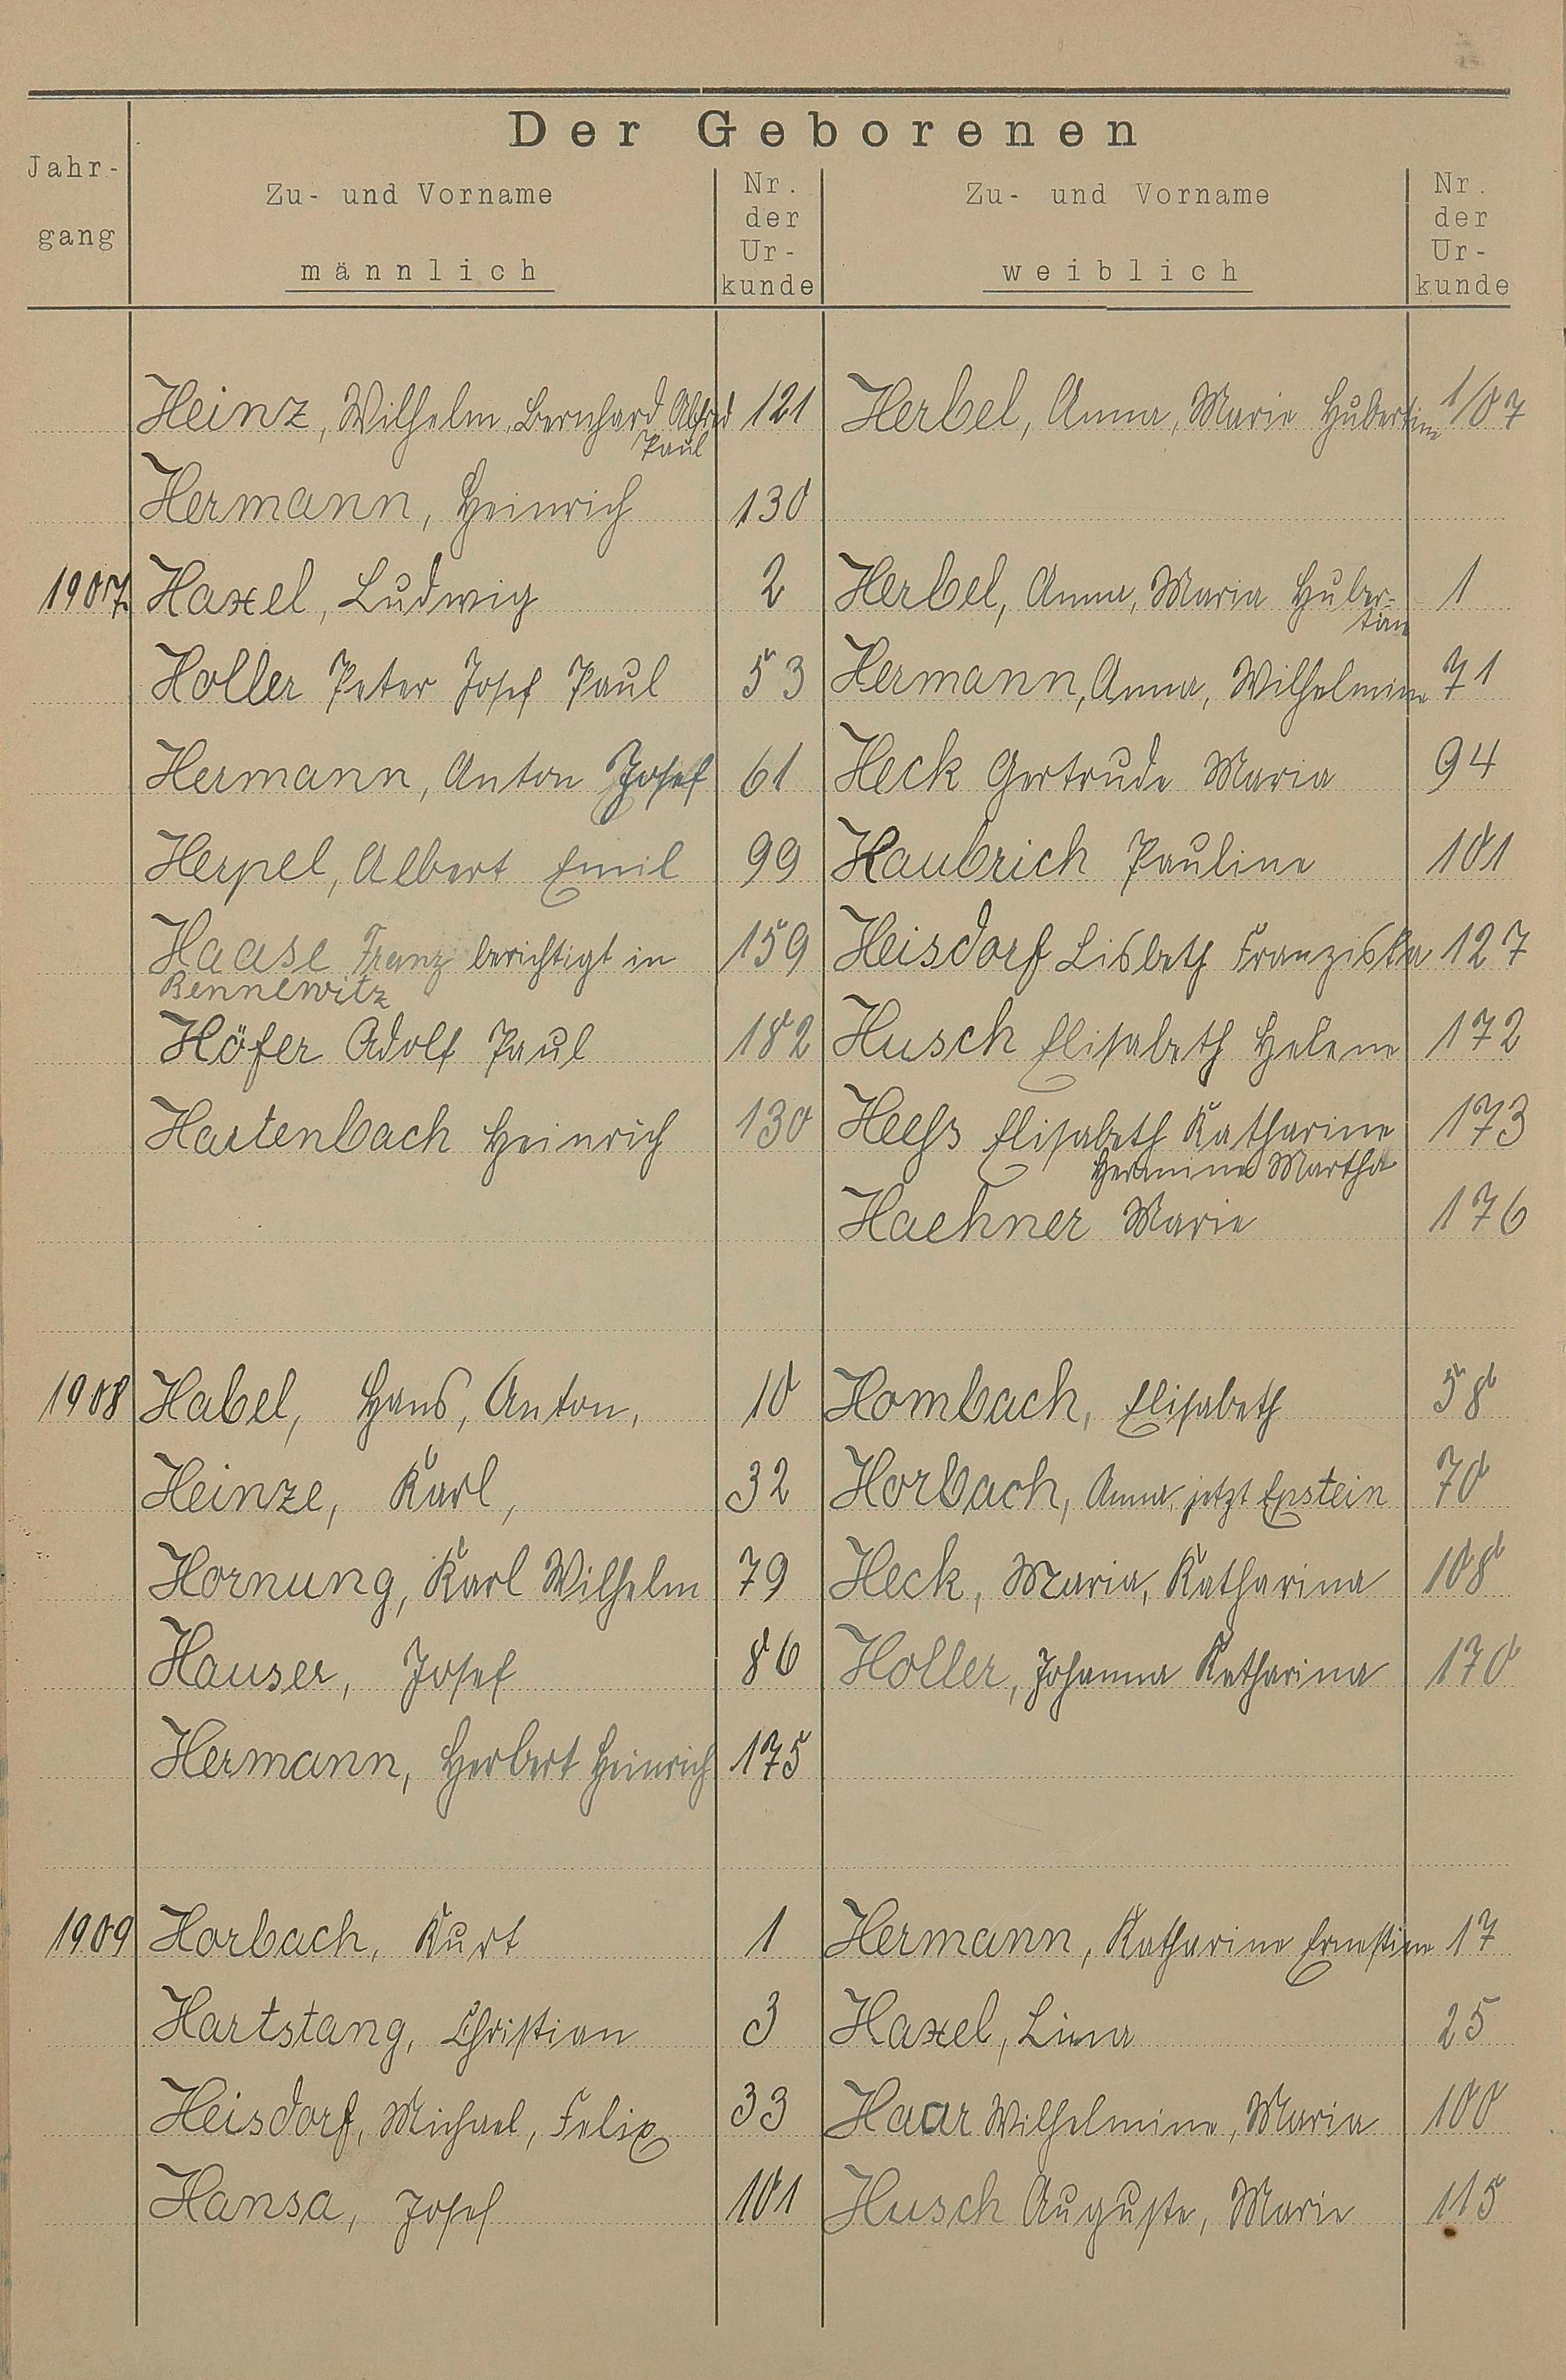 Der Geborenen
Jahr-
gang
Zu- und Vorname
männlich
Nr.
der
Ur-
kunde
Zu- und Vorname
weiblich
Nr.
der
Ur-
kunde
Heinz, Wilhelm, Bernhard Alfred 121 Herbel, Anna, Marie Hubertine 1/07
Paul
Hermann, Heinrich 130
1907. Haxel, Ludwig 2 Herbel, Anna, Maria Huber- 1
tine
Holler Peter Josef Paul 53 Hermann, Anna, Wilhelmine 71
Hermann, Anton Josef 61 Heck Gertrude Maria 94
Herpel, Albert Emil 99 Haubrich Pauline 101
Haase Franz berichtigt in 159 Heisdorf Lisbeth Franziska 127
Bennewitz
Höfer Adolf Paul 182 Husch Elisabeth Helene 172
Hartenbach Heinrich 130 Elisabeth Katharine 173
Hermine Martha
Haehner Marie 176
1908 Habel, Hans, Anton, 10 Hombach, Elisabeth 58
Heinze, Karl, 32 Horbach, Anna, jetzt Epstein 70
Hornung, Karl Wilhelm 79 Heck, Maria, Katharina 108
Hauser, Josef 86 Holler, Johanna Katharina 170
Hermann, Herbert Heinrich 175
1909 Horbach, Kurt 1 Hermann, Katharine Ernestine 17
Hartstang, Christian 3 Haxel, Lina 25
Heisdorf, Michael, Felix 33 Haar Wilhelmine, Maria 100
Hansa, Josef 101 Husch Auguste, Marie 115